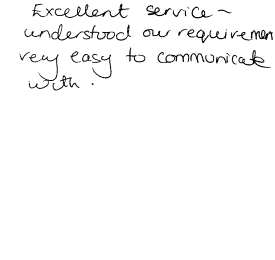 Excellent service ~
understood our requiremen
very easy to communicate
with.